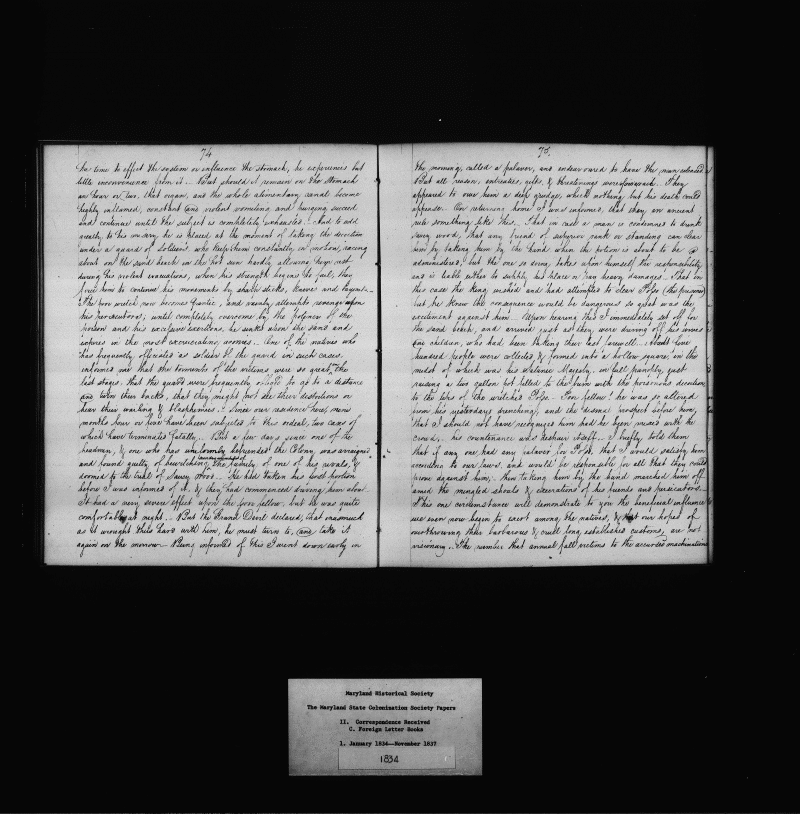 74
in time to effect the system or influence the stomach, he experiences but
little inconvenience from it.. But should it remain on the stomach
an hour or two, that organ, and the whole alimentary canal become
highly inflamed, constant and violent vomiting and purging succeed
and continue until the subject is completely exhausted. And to add
greatly to his misery, he is placed at the moment of taking the decoction
under a guard of soldiers who keep him constantly in motion, racing
about on the sand beach in the hot sun hardly allowing him rest
during his violent evacuations, when his strength begins to fail, they
force him to continue his movements by sharp sticks, knives and
The poor wretch now becomes frantic, and vainly attempts revenge upon
his persecutors; until completely overcome by the potency of the
poison and his excessive exertions, he sinks upon the sand and
expires in the most excruciating agonies.. One of the natives who
has frequently officiated as soldier of the guard in such cases,
informed me that the torments of the victims were so great, in the
last stages. that the guard were frequently obliged to go to a distance
and turn their backs, that they might not see their distortions or
hear their wailing & blasphemies. Since our residence here, many
months four or five have been subjected to this ordeal, two cases of
which have terminated fatally.. But a few days since one of the
headmen, & one who has uniformly befriended the Colony, was arraigned
and found guilty of bewitching the family of one of his rivals, &
doomed to the trial of Saucy Wood.. He had taken his first portion
before I was informed of it, & they had commenced driving him about.
It had a very severe effect upon the poor fellow, but he was quite
comfortable at night.. But the Grand Devil declared, that inasmuch
as it wrought thus hard with him, he must turn to, and take it
again on the morrow.. Being informed of this I went down early in
75.
the morning, called a palaver, and endeavoured to have the man released
But all reason, entreaties, gifts, & threatenings were of no avail.. They
appeared to owe him a deep grudge, which nothing but his death could
appease. On returning home I was informed, that they, an ancient
rule something like this.. That in case a man is condemned to drink
saucy wood, that any friend of superior rank or standing can clear
him by taking him by the hand when the potion is about to be
administered, but the one so doing, takes upon himself the responsibility
and is liable either to supply his place or pay heavy damages. That in
this case the King wished and had attempted to clear Popo (the prisoner)
but he knew the consequence would be dangerous so great was the
excitement against him. Upon hearing this I immediately set off for
the sand beach, and arrived just as they were driving off his wives
and children, who had been taking their last farewell.. About five
hundred people were collected & formed into a hollow square, in the
midst of which was his Satanic Majesty, in full panoply, just
raising a two gallon pot filled to the brim with the poisonous decoction
to the lips of the wretched Popo.. Poor fellow! he was so altered
from his yesterdays drenching, and the dismal prospect before him,
that I should not have recognized him had he been mixed with the
crowd.. his countenance was despair itself.. I briefly told them
that if any one had any palaver for Popo, that I would satisfy him
according to our laws, and would be responsible for all that they could
prove against him, then taking him by the hand marched him off
amid the mingled shouts & execrations of his friends and persecutors..
This one circumstance will demonstrate to you the beneficial influence
we even now begin to exert among the natives, & that our hopes of
overthrowing their barbarous & cruel long established customs, are not
visionary.. The number that annual fall victims to the accursed machinations
Maryland Historical Society
The Maryland State Colonization Society Papers
II. Correspondence Received
C. Foreign Letter Books
1. January 1834--November 1837
1834